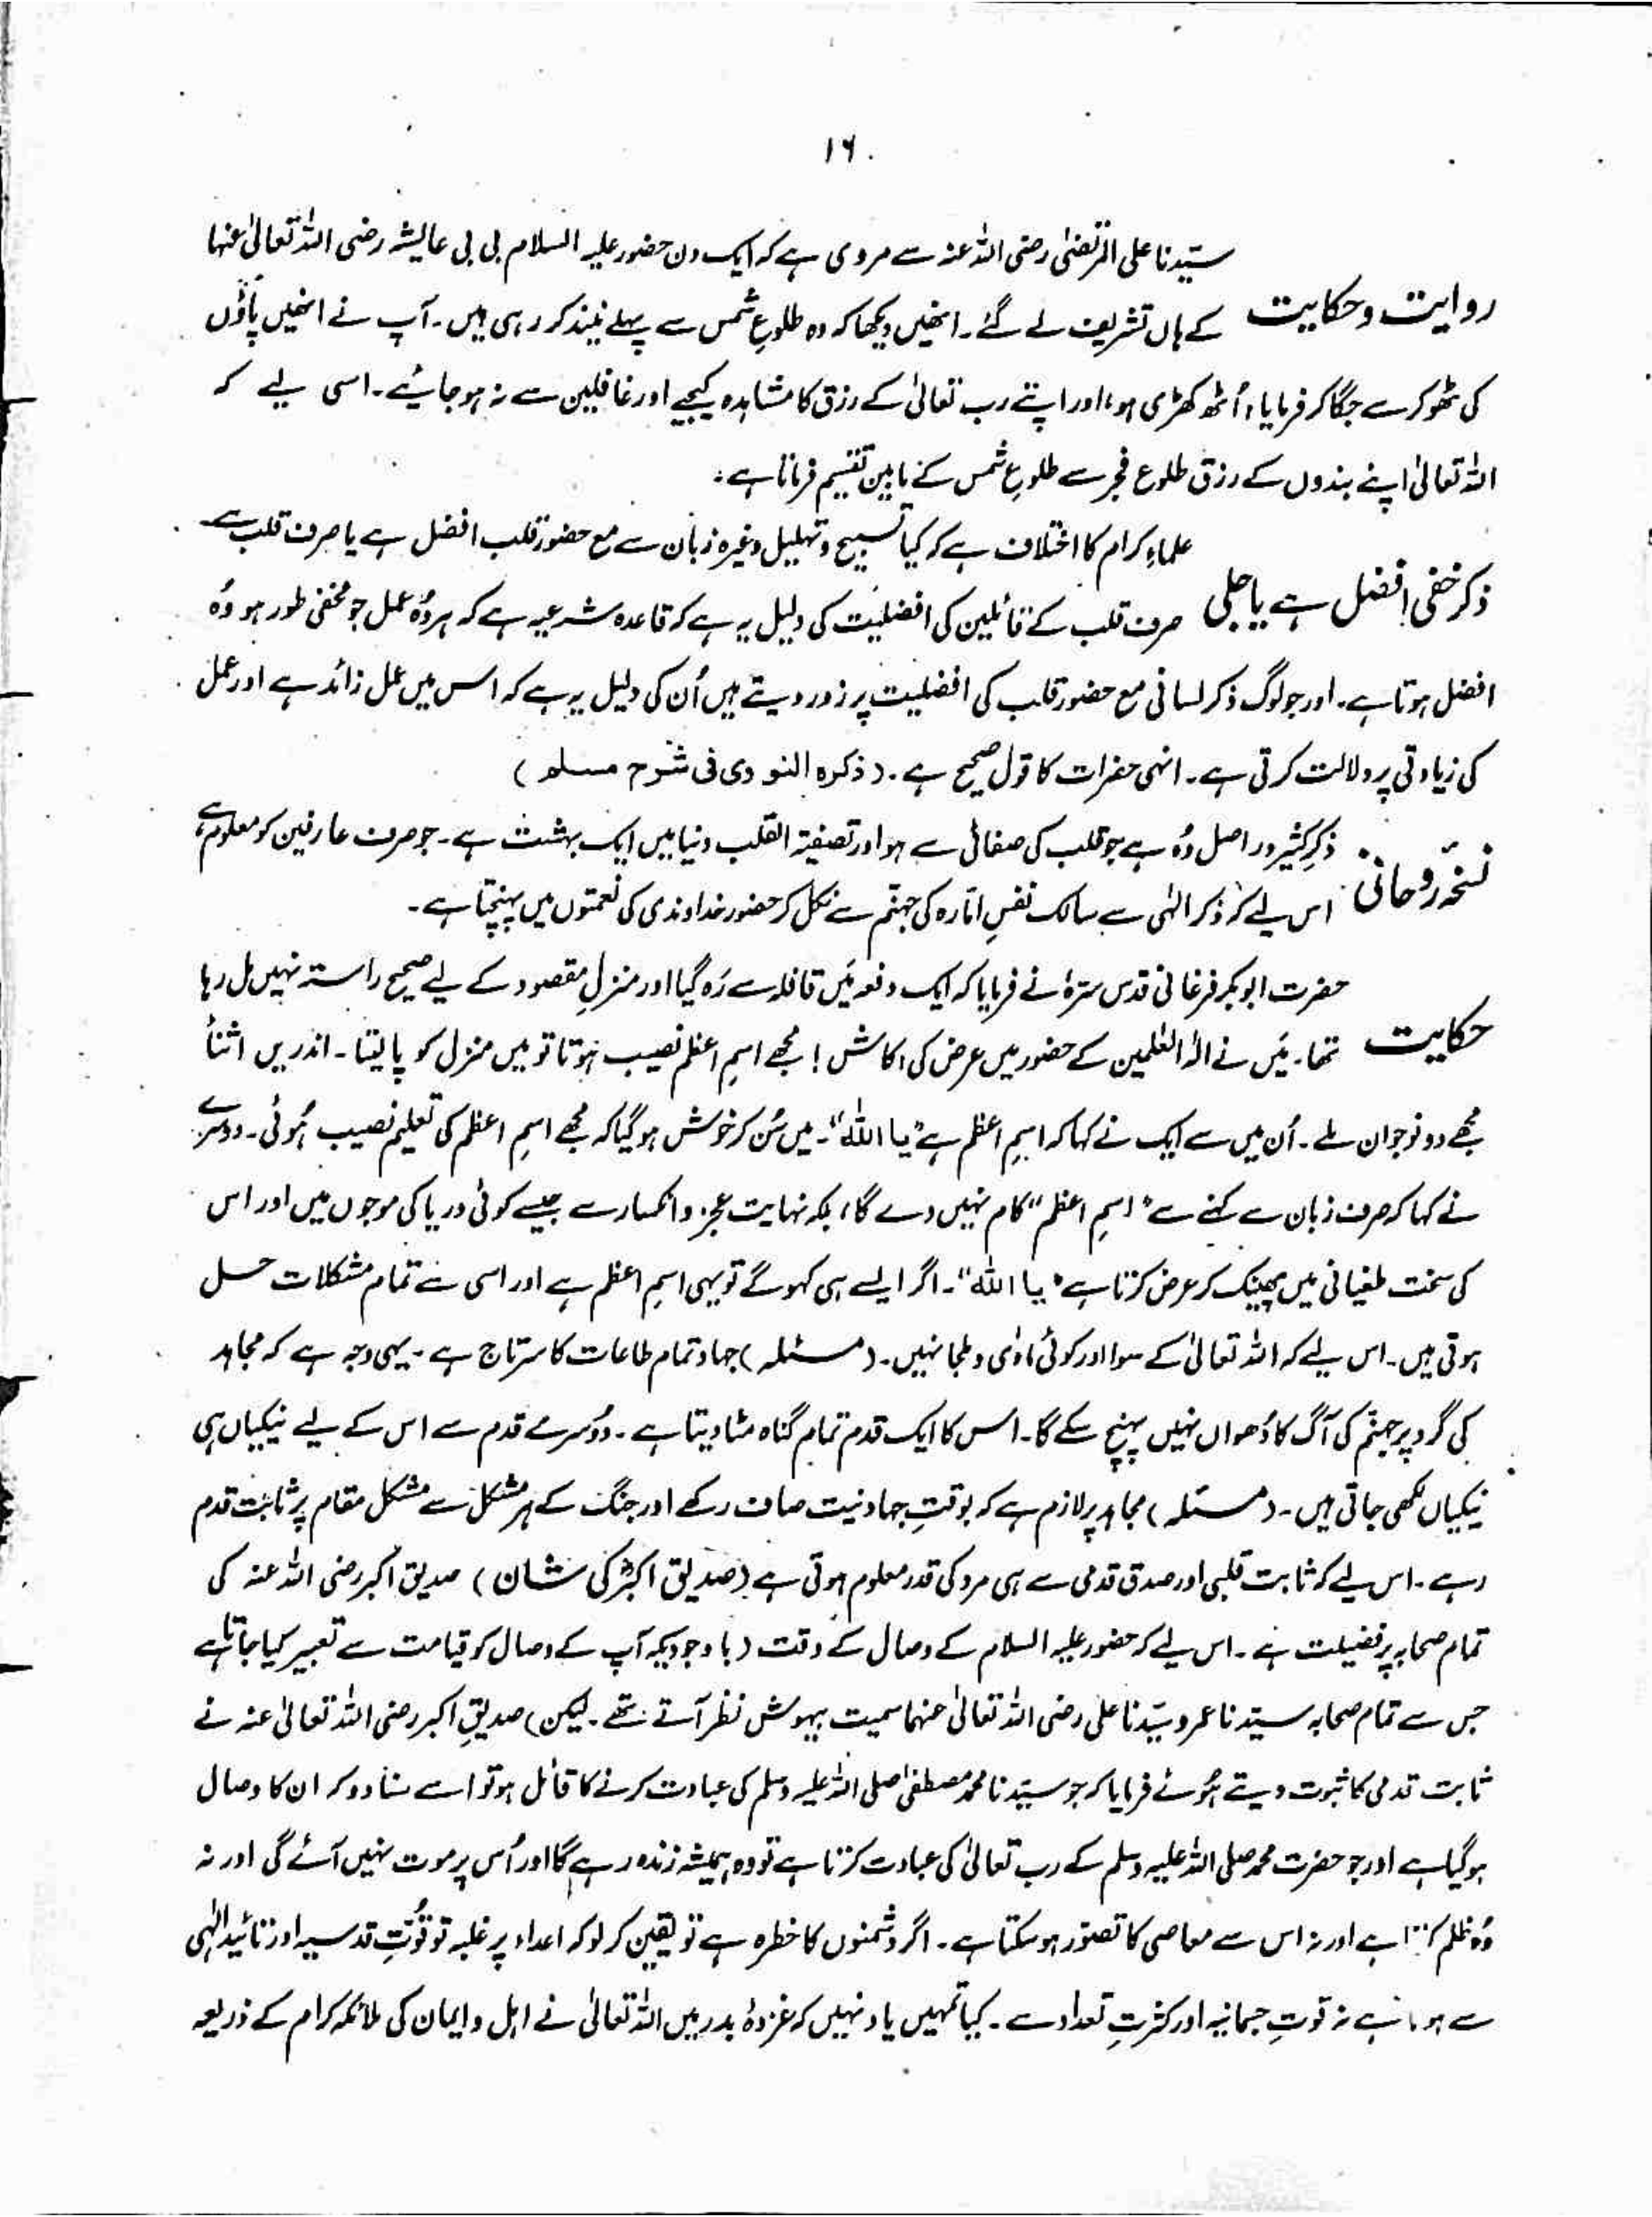 ۱۶
سیّدنا علی المرتضیٰ رضی اللہ عنہ سے مروی ہے کہ ایک دن حضور علیہ السلام بی بی عایشہ رضی اللہ تعالیٰ عنہا
روایت و حکایت کے ہاں تشریف لے گئے۔ انھیں دیکھا کہ وہ طلوعِ شمس سے پہلے نیند کر رہی ہیں۔ آپ نے انھیں پاؤں
کی ٹھوکر سے جگا کر فرمایا، اُٹھ کھڑی ہو، اور اپنے رب تعالیٰ کے رزق کا مشاہدہ کیجیے اور غافلین سے نہ ہو جائیے۔ اسی لیے کہ
اللہ تعالیٰ اپنے بندوں کے رزق طلوع فجر سے طلوعِ شمس کے مابین تقسیم فرماتا ہے۔
علماءِ کرام کا اختلاف ہے کہ کیا تسبیح و تہلیل وغیرہ زبان سے مع حضور قلب افضل ہے یا صرف قلب سے
ذکر خفی افضل ہے یا جلی صرف قلب کے قائلین کی افضلیت کی دلیل یہ ہے کہ قاعدہ شرعیہ ہے کہ ہر وُہ عمل جو مخفی طور ہو وُہ
افضل ہوتا ہے۔ اور جو لوگ ذکر لسانی مع حضور قلب کی افضلیت پر زور دیتے ہیں اُن کی دلیل یہ ہے کہ اس میں عمل زائد ہے اور عمل
کی زیادتی پر دلالت کرتی ہے۔ انہی حضرات کا قول صحیح ہے۔ (ذکرہ النووی فی شرح مسلم)
ذکرِ کثیر در اصل وُہ ہے جو قلب کی صفائی سے ہو اور تصفیۃ القلب دنیا میں ایک بہشت ہے۔ جو صرف عارفین کو معلوم ہے
نسخۂ روحانی اس لیے کہ ذکر الٰہی سے سالک نفسِ امّارہ کی جہنّم سے نکل کر حضور خداوندی کی نعمتوں میں پہنچتا ہے۔
حضرت ابوبکر فرغانی قدس سترہٗ نے فرمایا کہ ایک دفعہ مَیں قافلہ سے رَہ گیا اور منزلِ مقصود کے لیے صحیح راستہ نہیں مل رہا
حکایت تھا۔ مَیں نے الٰہ العٰلمین کے حضور میں عرض کی، کاش! مجھے اسمِ اعظم نصیب ہوتا تو میں منزل کو پا لیتا۔ اندریں اثنأ
مجھے دو نوجوان ملے۔ اُن میں سے ایک نے کہا کہ اسمِ اعظم ہے "یا اللہ"۔ میں سُن کر خوش ہو گیا کہ مجھے اسمِ اعظم کی تعلیم نصیب ہُوئی۔ دوسرے
نے کہا کہ صرف زبان سے کہنے سے "اسمِ اعظم" کام نہیں دے گا، بلکہ نہایت عجز و انکسار سے جیسے کوئی دریا کی موجوں میں اور اس
کی سخت طغیانی میں پھینک کر عرض کرتا ہے "یا اللہ"۔ اگر ایسے ہی کہو گے تو یہی اسمِ اعظم ہے اور اسی سے تمام مشکلات حل
ہوتی ہیں۔ اس لیے کہ اللہ تعالیٰ کے سوا اور کوئی ماوٰی و ملجا نہیں۔ (مسئلہ) جہاد تمام طاعات کا سرتاج ہے۔ یہی وجہ ہے کہ مجاہد
کی گرد پر جہنّم کی آگ کا دُھواں نہیں پہنچ سکے گا۔ اس کا ایک قدم تمام گناہ مٹا دیتا ہے۔ دُوسرے قدم سے اس کے لیے نیکیاں ہی
نیکیاں لکھی جاتی ہیں۔ (مسئلہ) مجاہد پر لازم ہے کہ بوقتِ جہاد نیت صاف رکھے اور جنگ کے ہر مشکل سے مشکل مقام پر ثابت قدم
رہے۔ اس لیے کہ ثابت قلبی اور صدق قدمی سے ہی مرد کی قدر معلوم ہوتی ہے (صدیق اکبرؓ کی شان) صدیق اکبر رضی اللہ عنہ کی
تمام صحابہ پر فضیلت ہے۔ اس لیے کہ حضور علیہ السلام کے وصال کے وقت (باوجودیکہ آپ کے وصال کو قیامت سے تعبیر کیا جاتا ہے
جس سے تمام صحابہ سیّدنا عمر و سیّدنا علی رضی اللہ تعالیٰ عنہما سمیت بیہوش نظر آتے تھے۔ لیکن) صدیقِ اکبر رضی اللہ تعالیٰ عنہ نے
ثابت قدمی کا ثبوت دیتے ہُوئے فرمایا کہ جو سیّدنا محمد مصطفیٰ صلی اللہ علیہ وسلم کی عبادت کرنے کا قائل ہو تو اسے سنا دو کہ ان کا وصال
ہو گیا ہے اور جو حضرت محمد صلی اللہ علیہ وسلم کے رب تعالیٰ کی عبادت کرتا ہے تو وہ ہمیشہ زندہ رہے گا اور اُس پر موت نہیں آئے گی اور نہ
وُہ ظلم ہے اور نہ اس سے معاصی کا تصوّر ہو سکتا ہے۔ اگر دُشمنوں کا خطرہ ہے تو یقین کر لو کہ اعداء پر غلبہ تو قوّتِ قدسیہ اور تائیدِ الٰہی
سے ہے نہ قوتِ جسمانیہ اور کثرتِ تعداد سے۔ کیا تمہیں یاد نہیں کہ غزوۂ بدر میں اللہ تعالیٰ نے اہل و ایمان کی ملائکہ کرام کے ذریعہ